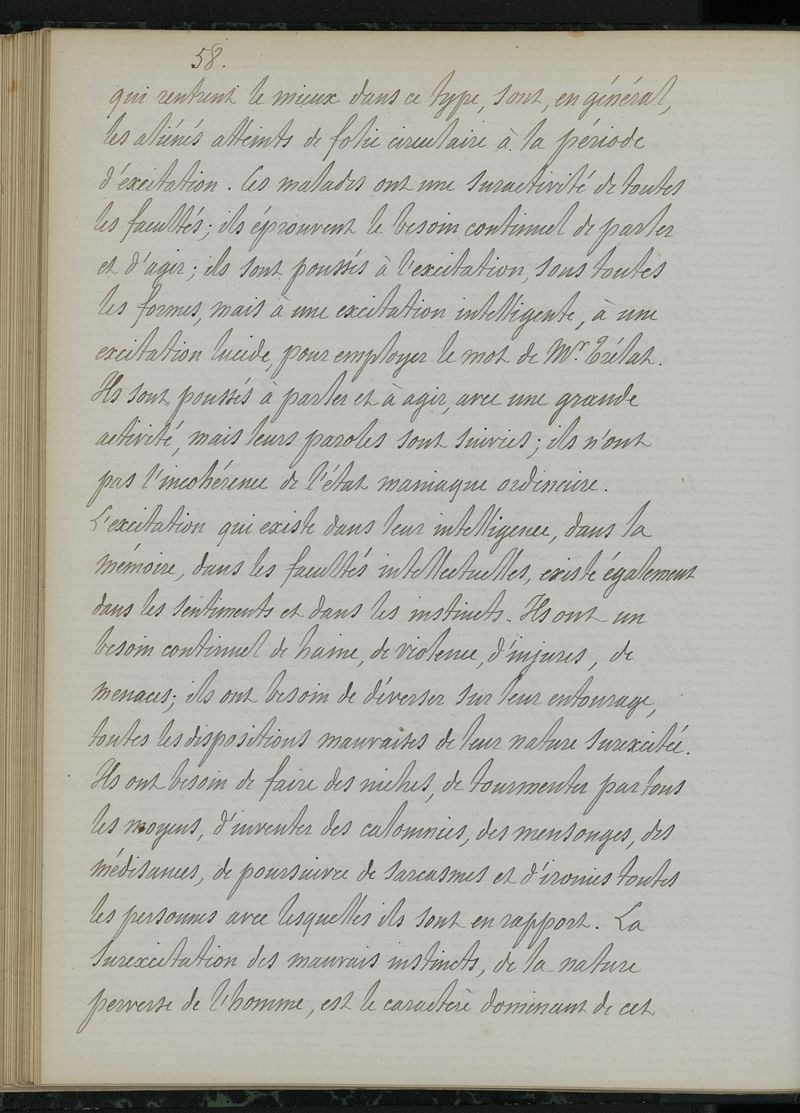 58.
qui rentrent le mieux dans ce type, sont, en général,
les aliénés atteints de folie circulaire à la période
d'éxcitation. Ces malades ont une suractivité de toutes
les facultés; ils éprouvent le besoin continuel de parler
et d'agir; ils sont poussés à l'excitation, sous toutes
les formes, mais à une excitation intelligente, à une
excitation lucide, pour employer le mot de Mr. Trélat.
Ils sont poussés à parler et à agir, avec une grande
activité, mais leurs paroles sont suivies; ils n'ont
pas l'incohérence de l'état maniaque ordinaire.
L'excitation qui existe dans leur intelligence, dans la
mémoire, dans les facultés intellectuelles, existe également
dans les sentiments et dans les instincts. Ils ont un
besoin continuel de haine, de violence, d'injures, de
menaces; ils ont besoin de déverser sur leur entourage,
toutes les dispositions mauvaises de leur nature surexcitée.
Ils ont besoin de faire des niches, de tourmenter par tous
les moyens, d'inventer des calomnies, des mensonges, des
médisances, de poursuivre de sarcasmes et d'ironies toutes
les personnes avec lesquelles ils sont en rapport. La
surexcitation des mauvais instincts, de la nature
perverse de l'homme, est le caractère dominant de cet